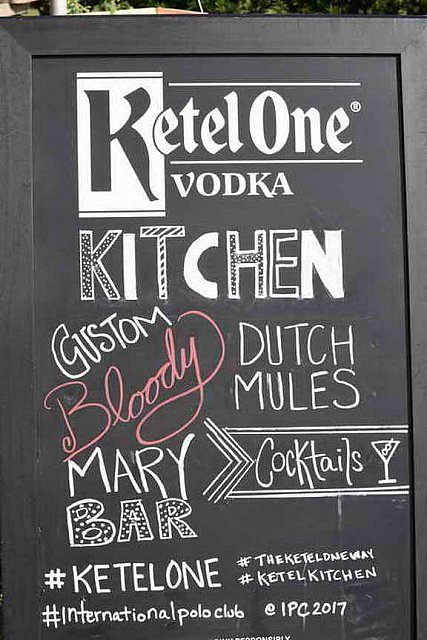 Ketel One®
VODKA
KITCHEN
CUSTOM
Bloody
MARY
BAR
DUTCH
MULES
Cocktails
#KETELONE
#THEKETELONEWAY
#KETELKITCHEN
#Internationalpoloclub @IPC2017
RESPONSIBLY